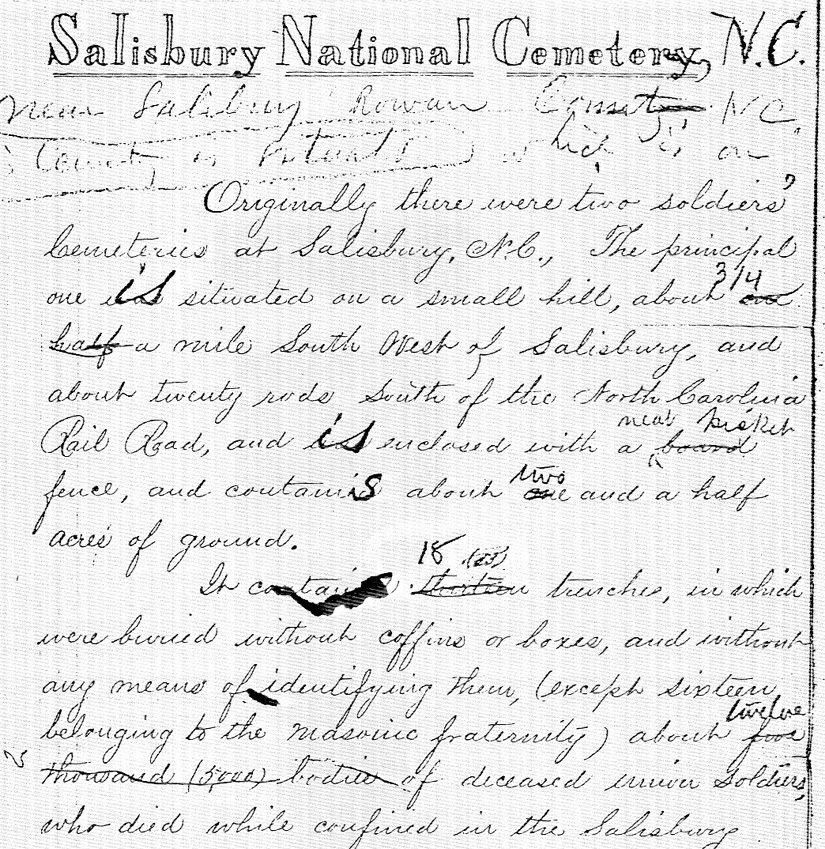 Salisbury National Cemetery, N.C.
Near Salisbury Rowan N.C.
County is situated which is on
Originally there were two soldiers'
Cemeteries at Salisbury, N.C., The principal
3/4
one is situated on a small hill, about one
half a mile South West of Salisbury, and
about twenty rods South of the North Carolina
neat picket
Rail Road, and is enclosed with a board
two
fence, and contains about one and a half
acres of ground.
18
It contains thirteen trenches, in which
were buried without coffins or boxes, and without
any means of identifying them, (except sixteen
twelve
belonging to the Masonic fraternity) about five
thousand (5,000) bodies of deceased union soldiers,
who died while confined in the Salisbury